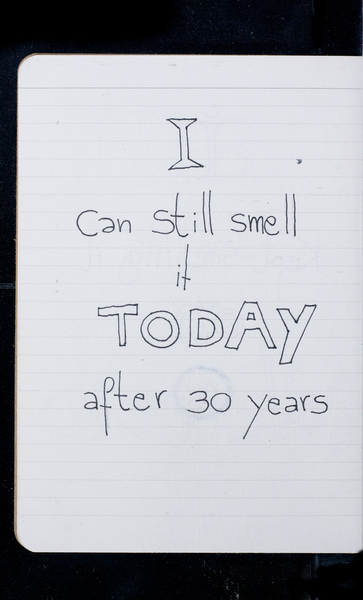 I
can still smell
it
TODAY
after 30 years